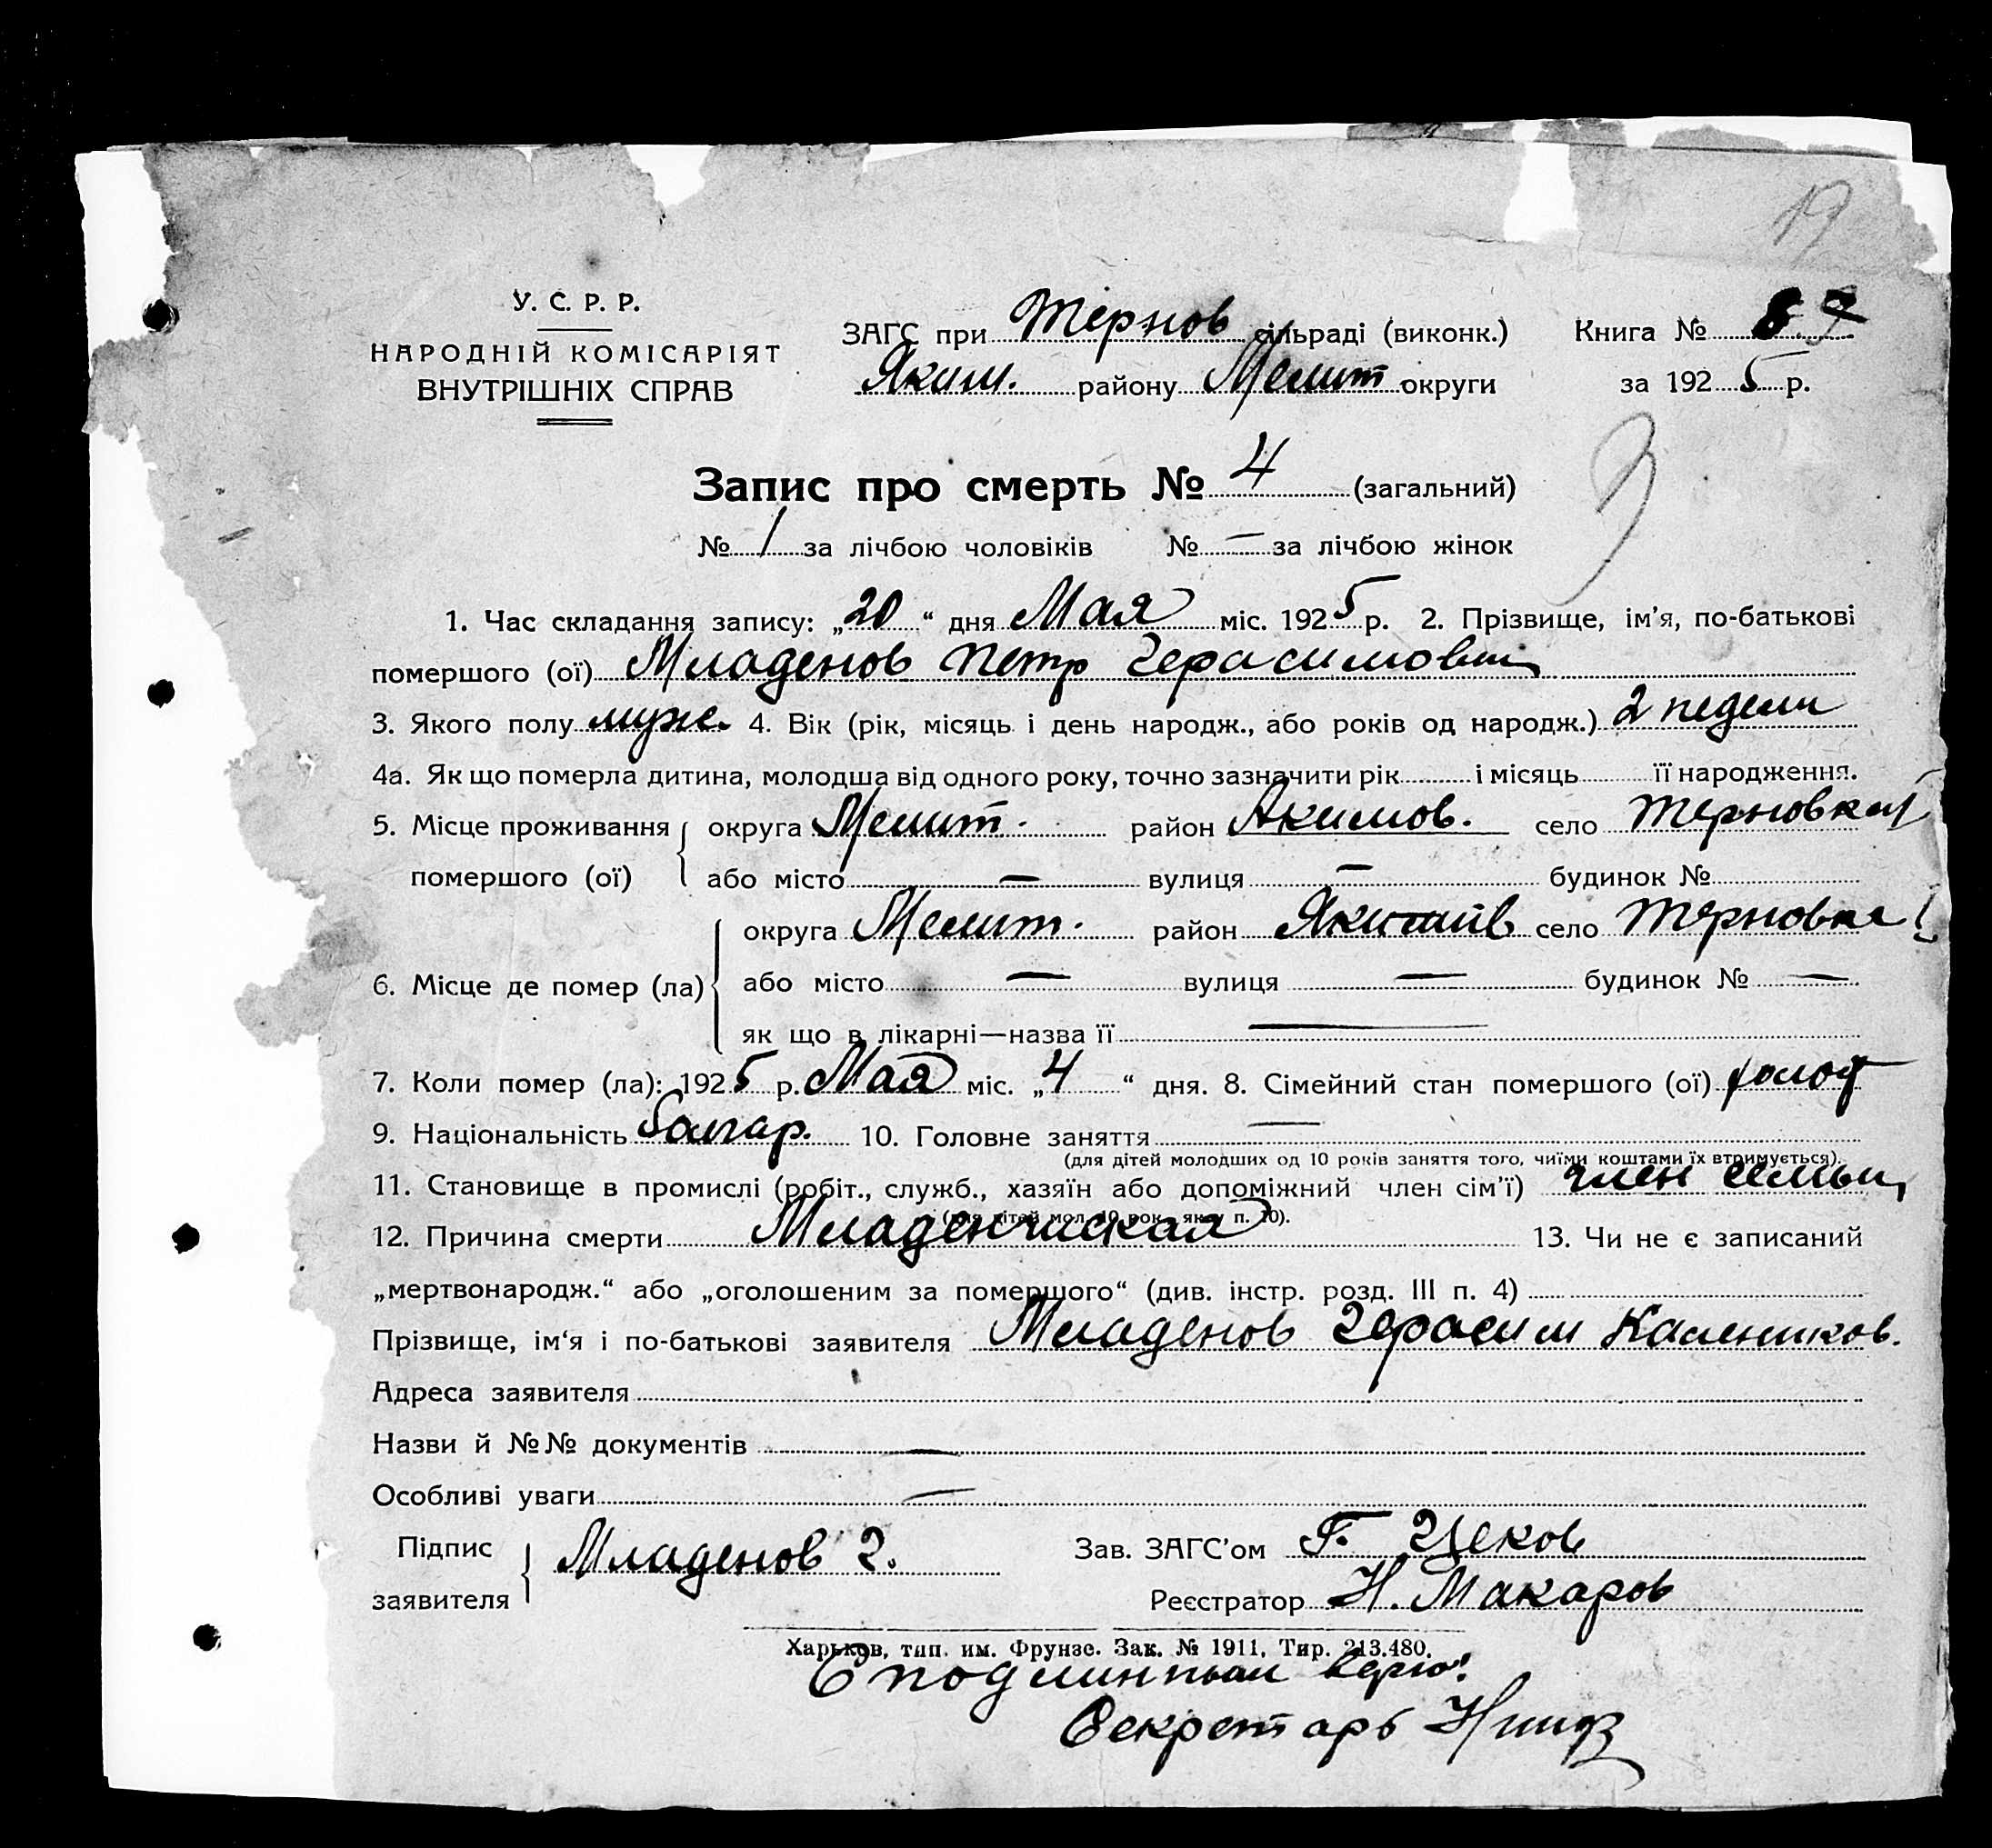 19
У. С. Р. Р.
НАРОДНІЙ КОМІСАРІЯТ
ВНУТРІШНІХ СПРАВ
ЗАГС при Тернов сільраді (виконк.) Книга №
Яким. району Мелит округи за 1925 р.
Запис про смерть № 4 (загальний)
3
№ 1 за лічбою чоловіків № — за лічбою жінок
1. Час складання запису: „20“ дня Мая міс. 1925 р. 2. Прізвище, ім'я, по-батькові
помершого (ої) Младенов Петр Герасимович
3. Якого полу муже. 4. Вік (рік, місяць і день народж., або років од народж.) 2 недели
4а. Як що померла дитина, молодша від одного року, точно зазначити рік і місяць її народження.
5. Місце проживання округа Мелит. район Акимов. село Терновка
помершого (ої) або місто — вулиця — будинок №
округа Мелит. район село Терновка
6. Місце де помер (ла) або місто — вулиця — будинок № —
як що в лікарні—назва її —
7. Коли помер (ла): 1925 р. Мая міс. „4“ дня. 8. Сімейний стан помершого (ої) холост
9. Національність болгар. 10. Головне заняття —
(для дітей молодших од 10 років заняття того, чиїми коштами їх втримується).
11. Становище в промислі (робіт., служб., хазяїн або допоміжний член сім'ї) член семьи
(для дітей мол. 10 рок. як у п. 10).
12. Причина смерти Младенчиская 13. Чи не є записаний
„мертвонародж.“ або „оголошеним за помершого“ (див. інстр. розд. III п. 4)
Прізвище, ім'я і по-батькові заявителя Младенов Герасим Калеников.
Адреса заявителя
Назви й №№ документів —
Особливі уваги —
Підпис заявителя Младенов Г. Зав. ЗАГС'ом Г. Цеков
Реєстратор Н. Макаров
Харьков, тип. им. Фрунзе. Зак. № 1911, Тир. 213.480.
С подлинным верно:
Секретарь